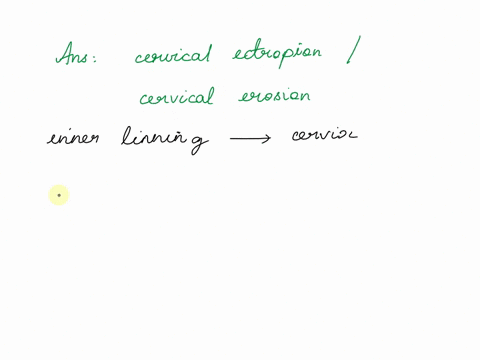 Ans: cervical ectropion /
cervical erosion
inner linning → cervix